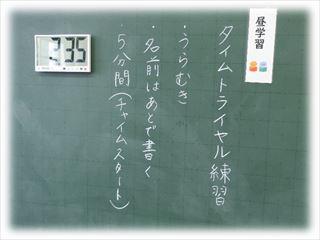 昼学習
タイムトライヤル練習
・うらむき
・名前はあとで書く
・5分間(チャイムスタート)
3:35